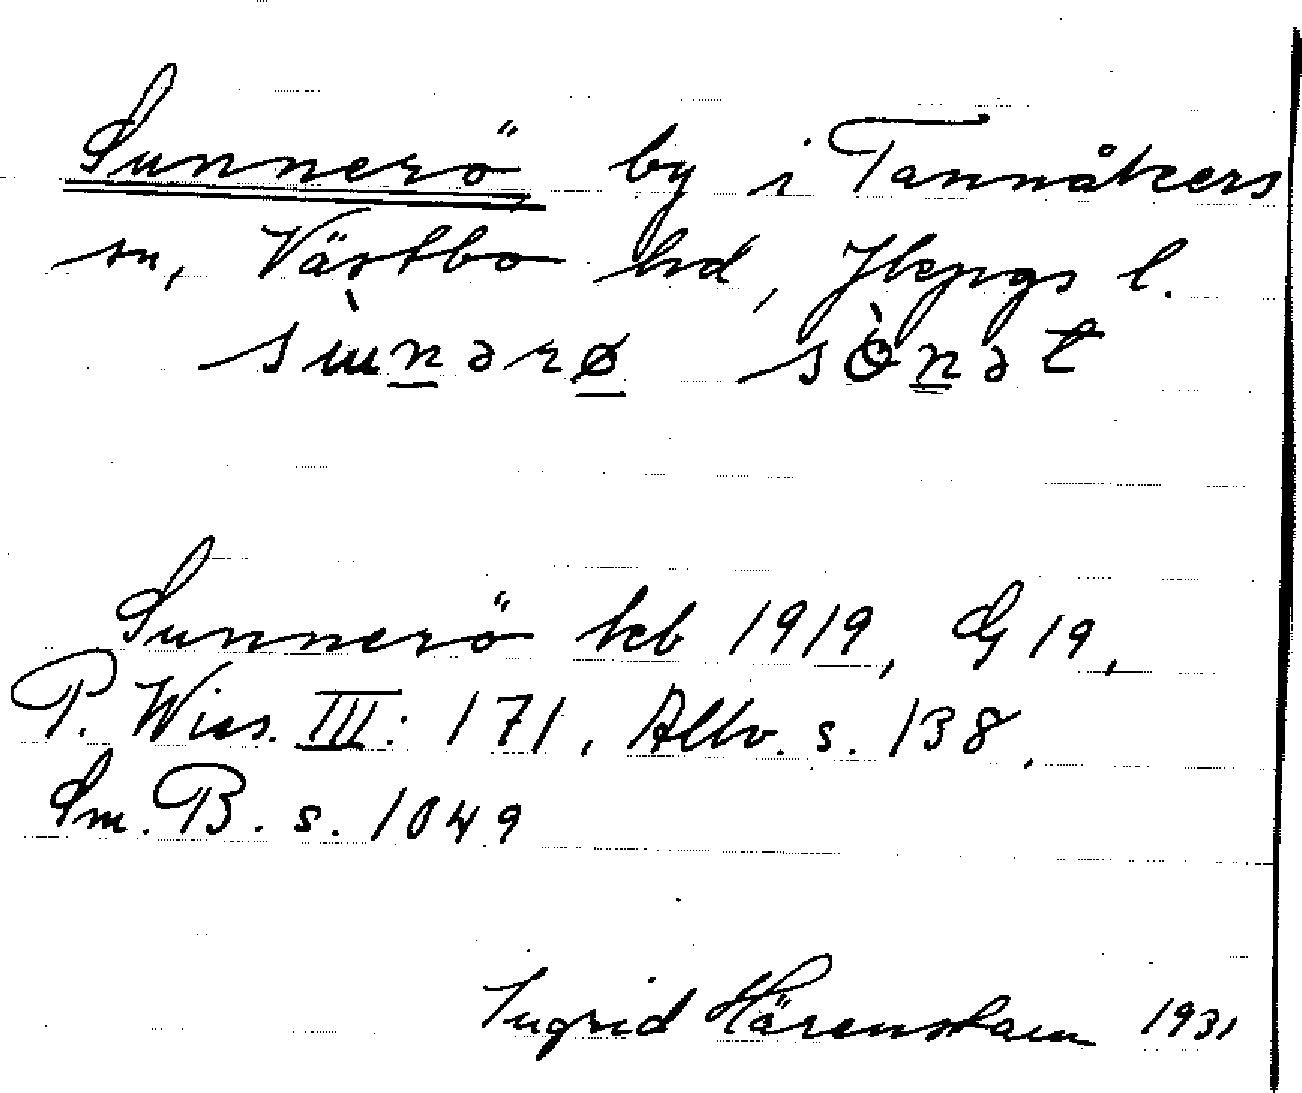 Sunnerö by i Tannåkers
sn, Västbo hd, Jkpgs l.
Sunnerö kb 1919, G 19,
P. Wies. III: 171, Allv. s. 138,
Sm. B. s. 1049
Ingrid Härenstam 1931